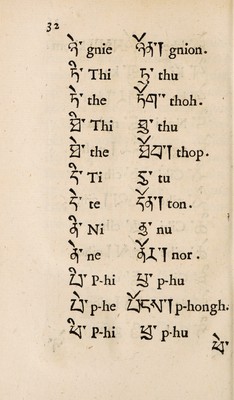 32
ཉེ་ gnie ཉོན། gnion.
ཏི་ Thi ཏུ་ thu
ཏེ་ the ཏོག། thoh.
ཐི་ Thi ཐུ་ thu
ཐེ་ the ཐོབ། thop.
དི་ Ti དུ་ tu
དེ་ te དོན། ton.
ནི་ Ni ནུ་ nu
ནེ་ ne ནོར། nor.
པི་ P-hi པུ་ p-hu
པེ་ p-he པོངས། p-hongh.
ཕི་ P-hi ཕུ་ p-hu
ཕེ་